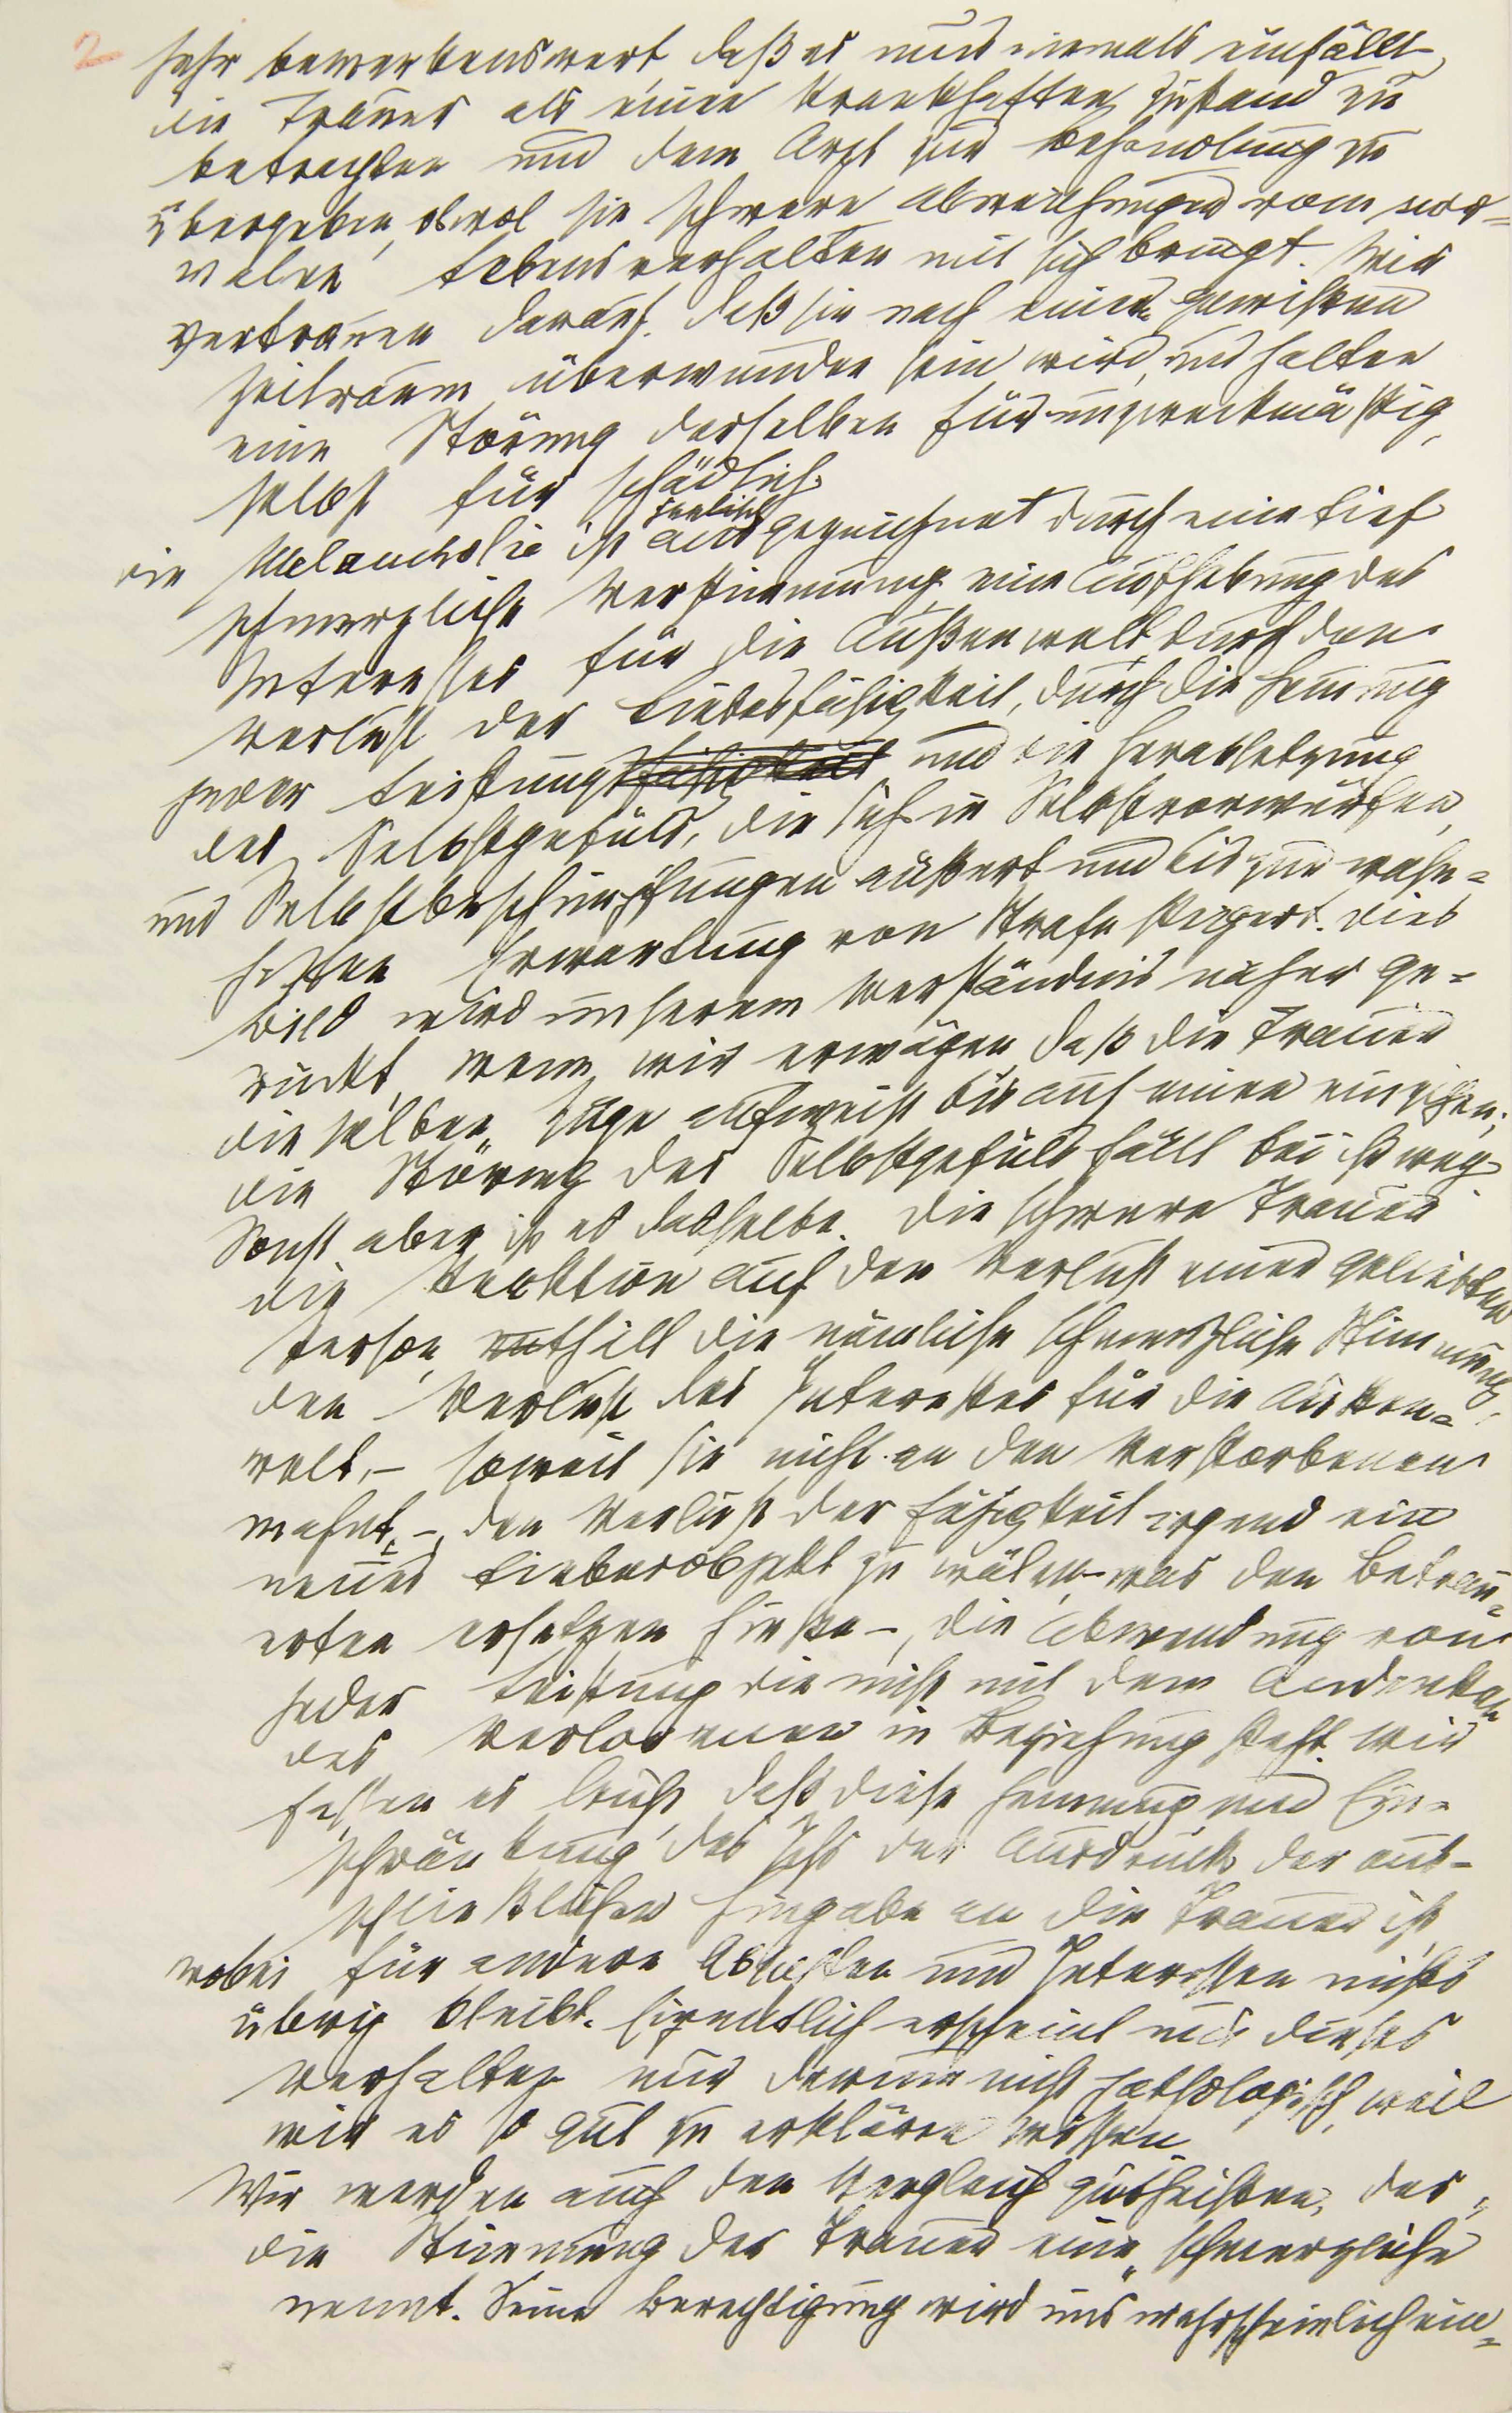 2
sehr bemerkenswert, daß es uns niemals einfällt,
die Trauer als einen krankhaften Zustand zu
betrachten und dem Arzt zur Behandlung zu
übergeben, obwol sie schwere Abweichungen vom nor=
malen Lebensverhalten mit sich bringt. Wir
vertrauen darauf, daß sie nach einem gewissen
Zeitraum überwunden sein wird, und halten
eine Störung derselben für unzweckmäßig,
selbst für schädlich.
Die Melancholie ist seelisch ausgezeichnet durch eine tief
schmerzliche Verstimmung, eine Aufhebung des
Interesses für die Außenwelt, durch den
Verlust der Liebesfähigkeit, durch die Hemmung
jeder Leistungsfähigkeit und die Herabsetzung
des Selbstgefüls, die sich in Selbstvorwürfen
und Selbstbeschimpfungen äußert und bis zur wahn=
haften Erwartung von Strafe steigert. Dies
Bild wird unserem Verständnis näher ge=
rückt, wenn wir erwägen, daß die Trauer
dieselben Züge aufweist bis auf einen einzigen;
die Störung des Selbstgefüls fällt bei ihr weg.
Sonst aber ist es dasselbe. Die schwere Trauer
die Reaktion auf den Verlust einer geliebten
Person, enthält die nämliche schmerzliche Stimmung,
den Verlust des Interesses für die Außen=
welt, – soweit sie nicht an den Verstorbenen
mahnt, – den Verlust der Fähigkeit irgend ein
neues Liebesobjekt zu wälen – was den Betrau=
erten ersetzen hieße –, die Abwendung von
jeder Leistung die nicht mit dem Andenken
des Verlorenen in Beziehung steht. Wir
fassen es leicht, daß diese Hemmung und Ein=
schränkung des Ichs der Ausdruck der aus=
schließlichen Hingabe an die Trauer ist,
wobei für andere Absichten und Interessen nichts
übrig bleibt. Eigentlich erscheint uns dieses
Verhalten nur darum nicht pathologisch, weil
wir es so gut zu erklären wissen.
Wir werden auch den Vergleich gutheißen, der
die Stimmung der Trauer eine „schmerzliche"
nennt. Seine Berechtigung wird uns wahrscheinlich ein=